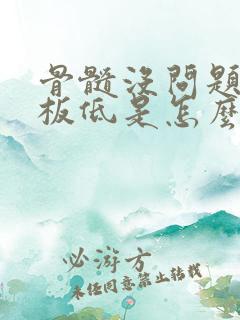 骨髓沒問題
板低是怎麼
必游方
未经同意禁止转载